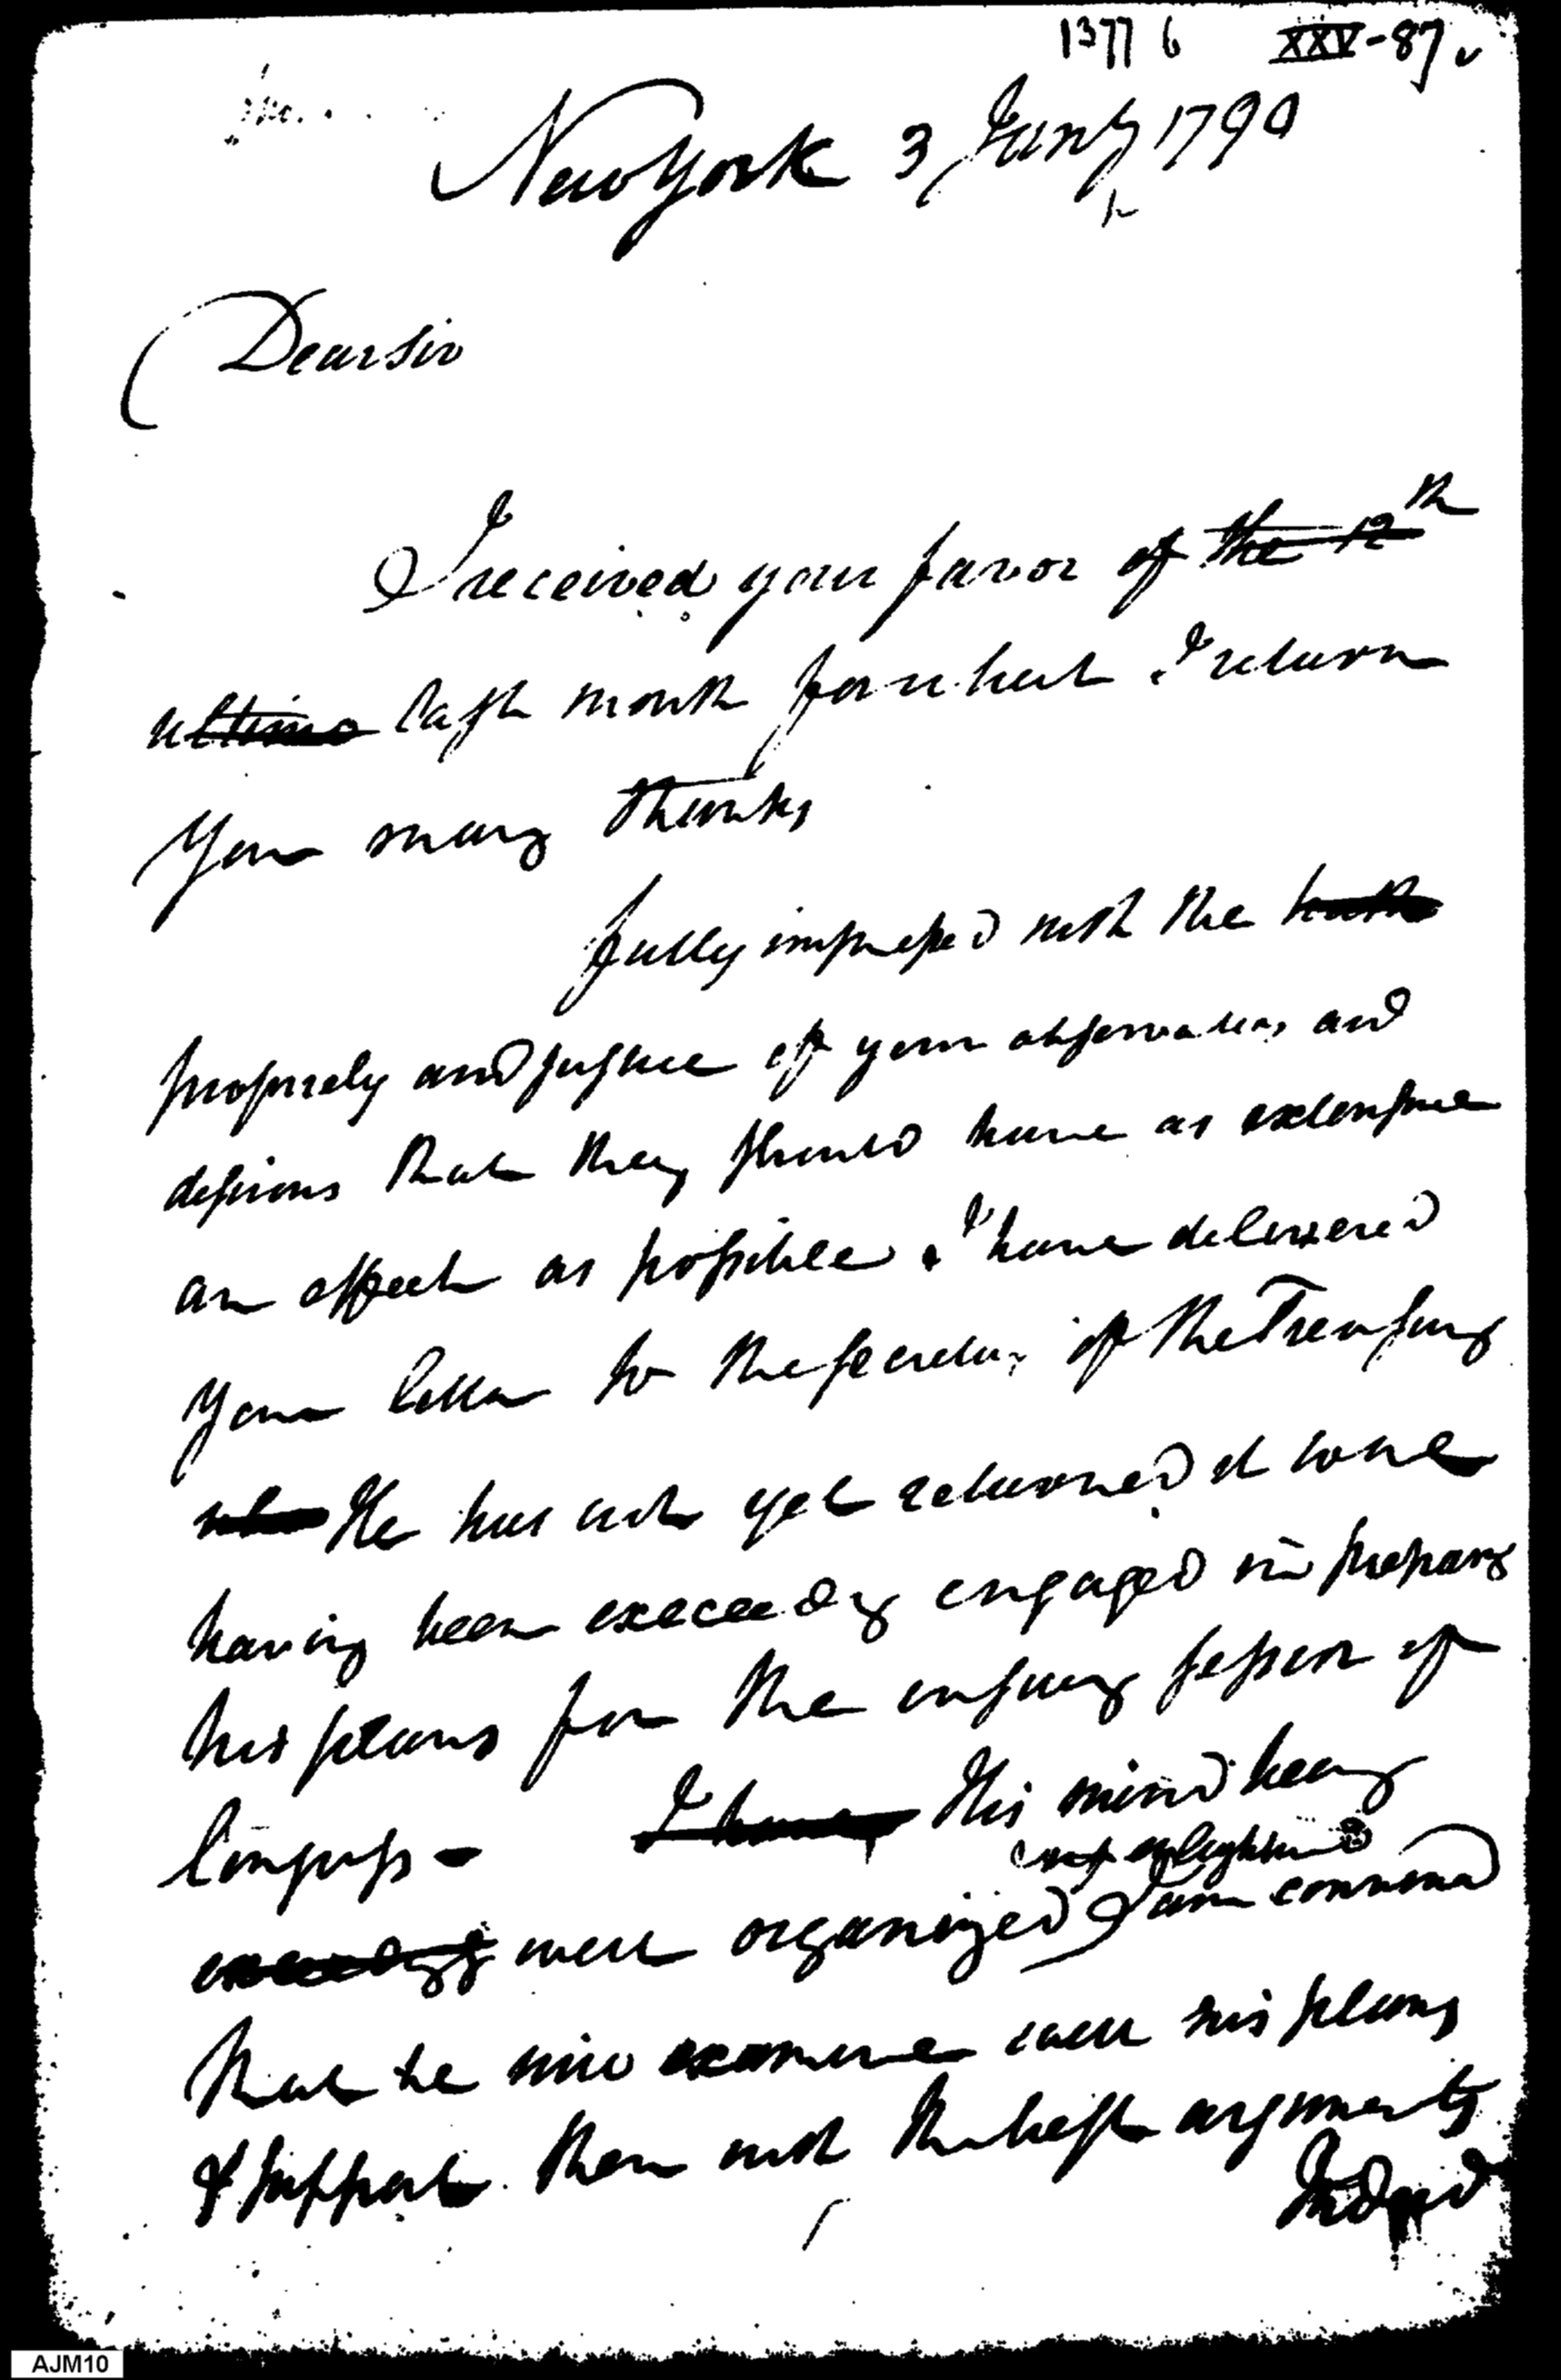 1377 6 XXV-87 v
New York 3 Jany 1790
Dear sir
I received your favor of the 12th
ultimo last month for which I return
You many thanks
fully impressed with the truth
propriety and justice of your observations and
desirous that they should have as extensive
an effect as possible I have delivered
Your letter to the secretary of the Treasury
who He has not yet returned it to me
having been exceedg engaged in preparg
his plans for the ensuing session of
Congress - I have His mind being
and enlightened
exceedgy well organized I am convinced
that he will examine well his plans
& support them with the best arguments
Indeed
AJM10